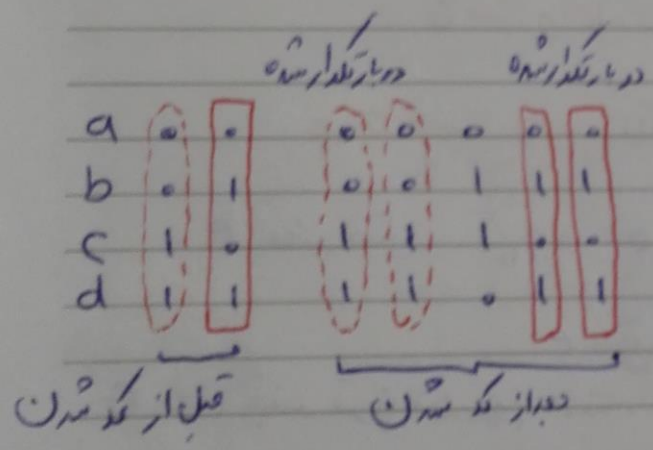 دوبار تکرار شده دوبار تکرار شده
a 0 0 0 0 0 0 0
b 0 1 0 0 1 1 1
c 1 0 1 1 1 0 0
d 1 1 1 1 0 1 1
قبل از کد شدن بعد از کد شدن